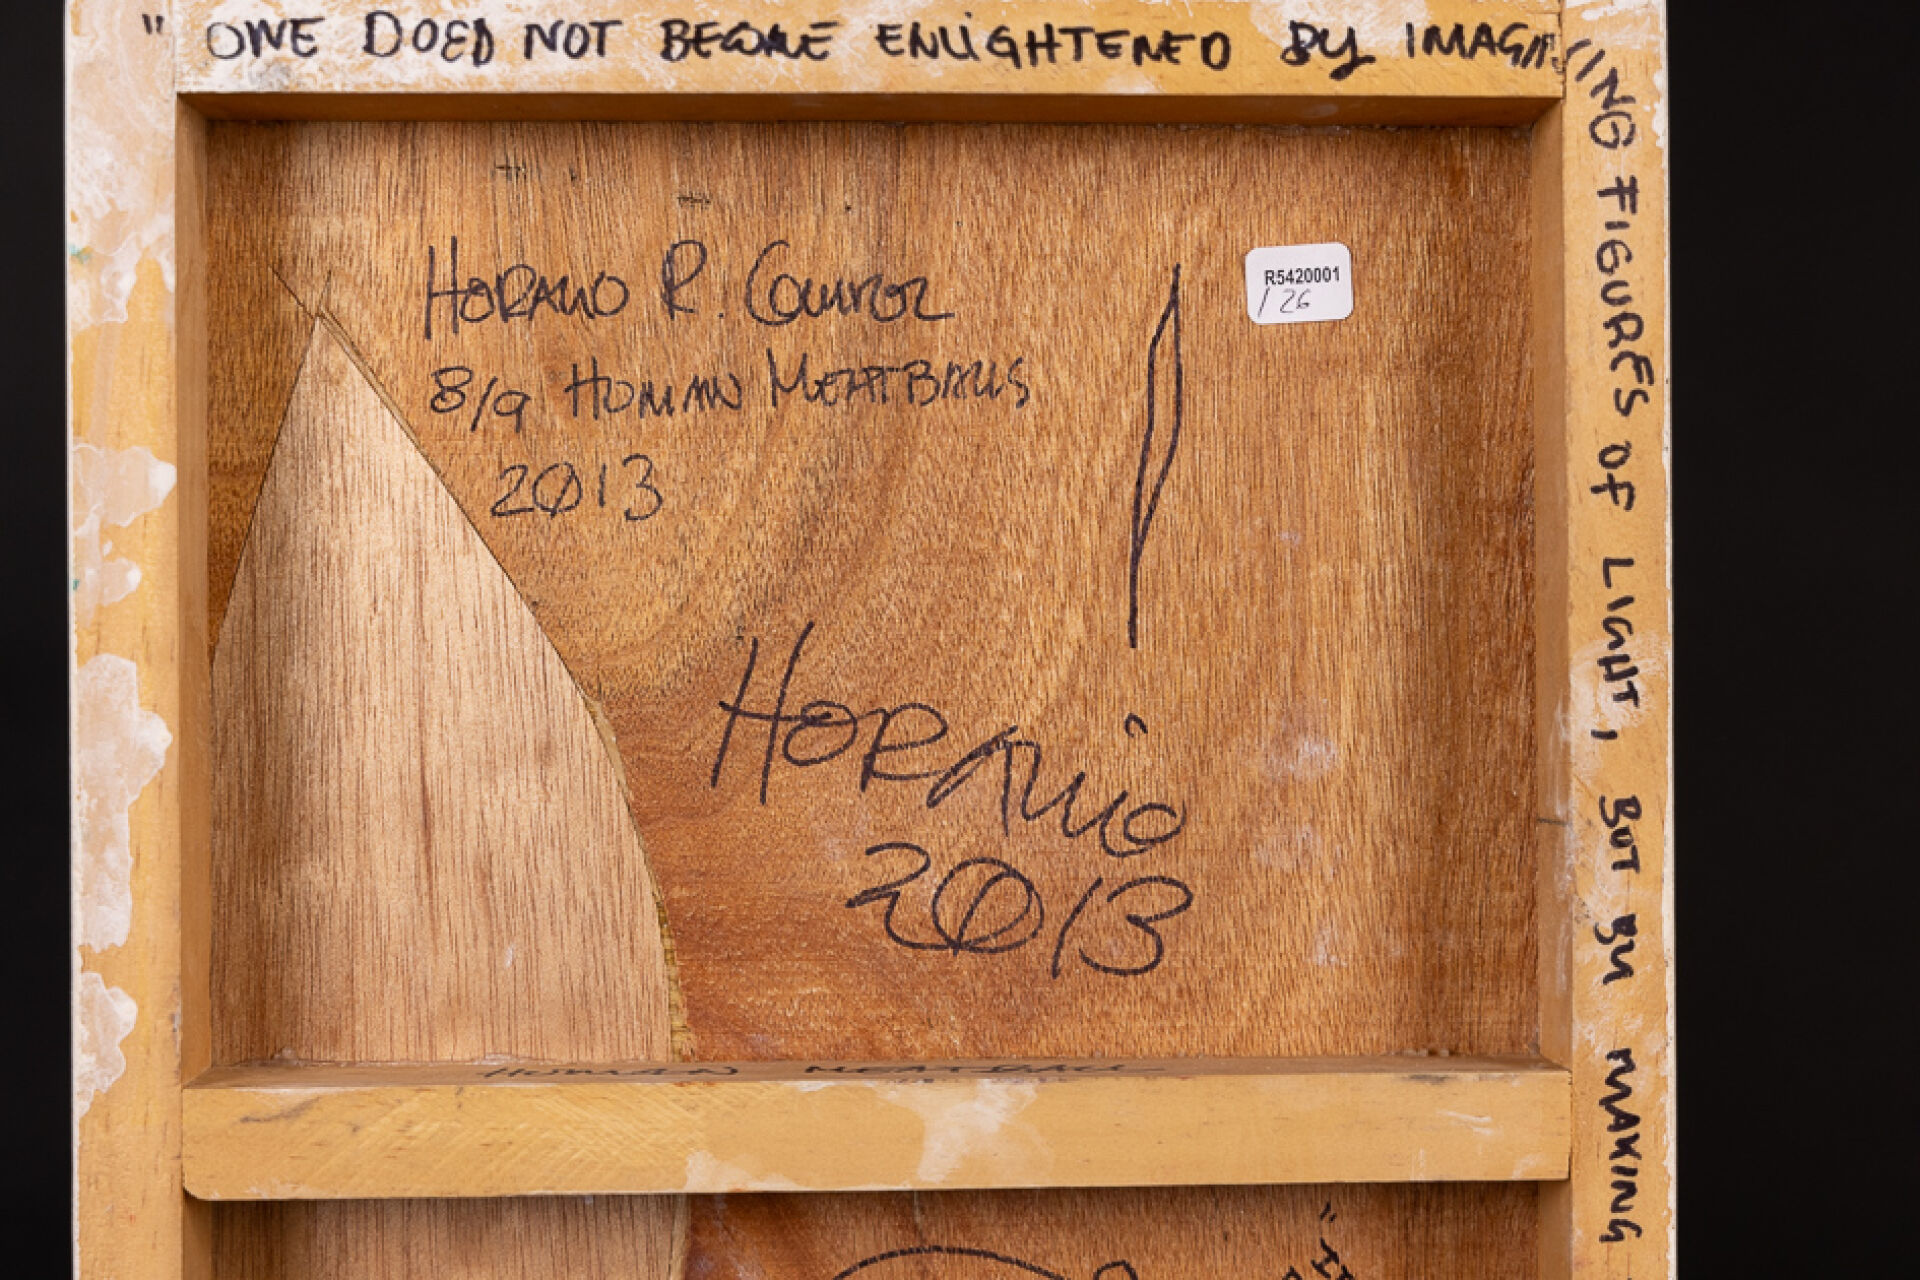 " ONE DOED NOT BECOME ENLIGHTENED BY IMAGIN
ING FIGURES OF LIGHT, BUT BY MAKING
HORACIO R.
8/9 HUMAN MEATBALLS
2013
R5420001
/26
HORACIO
2013
HUMAN MEATBALL